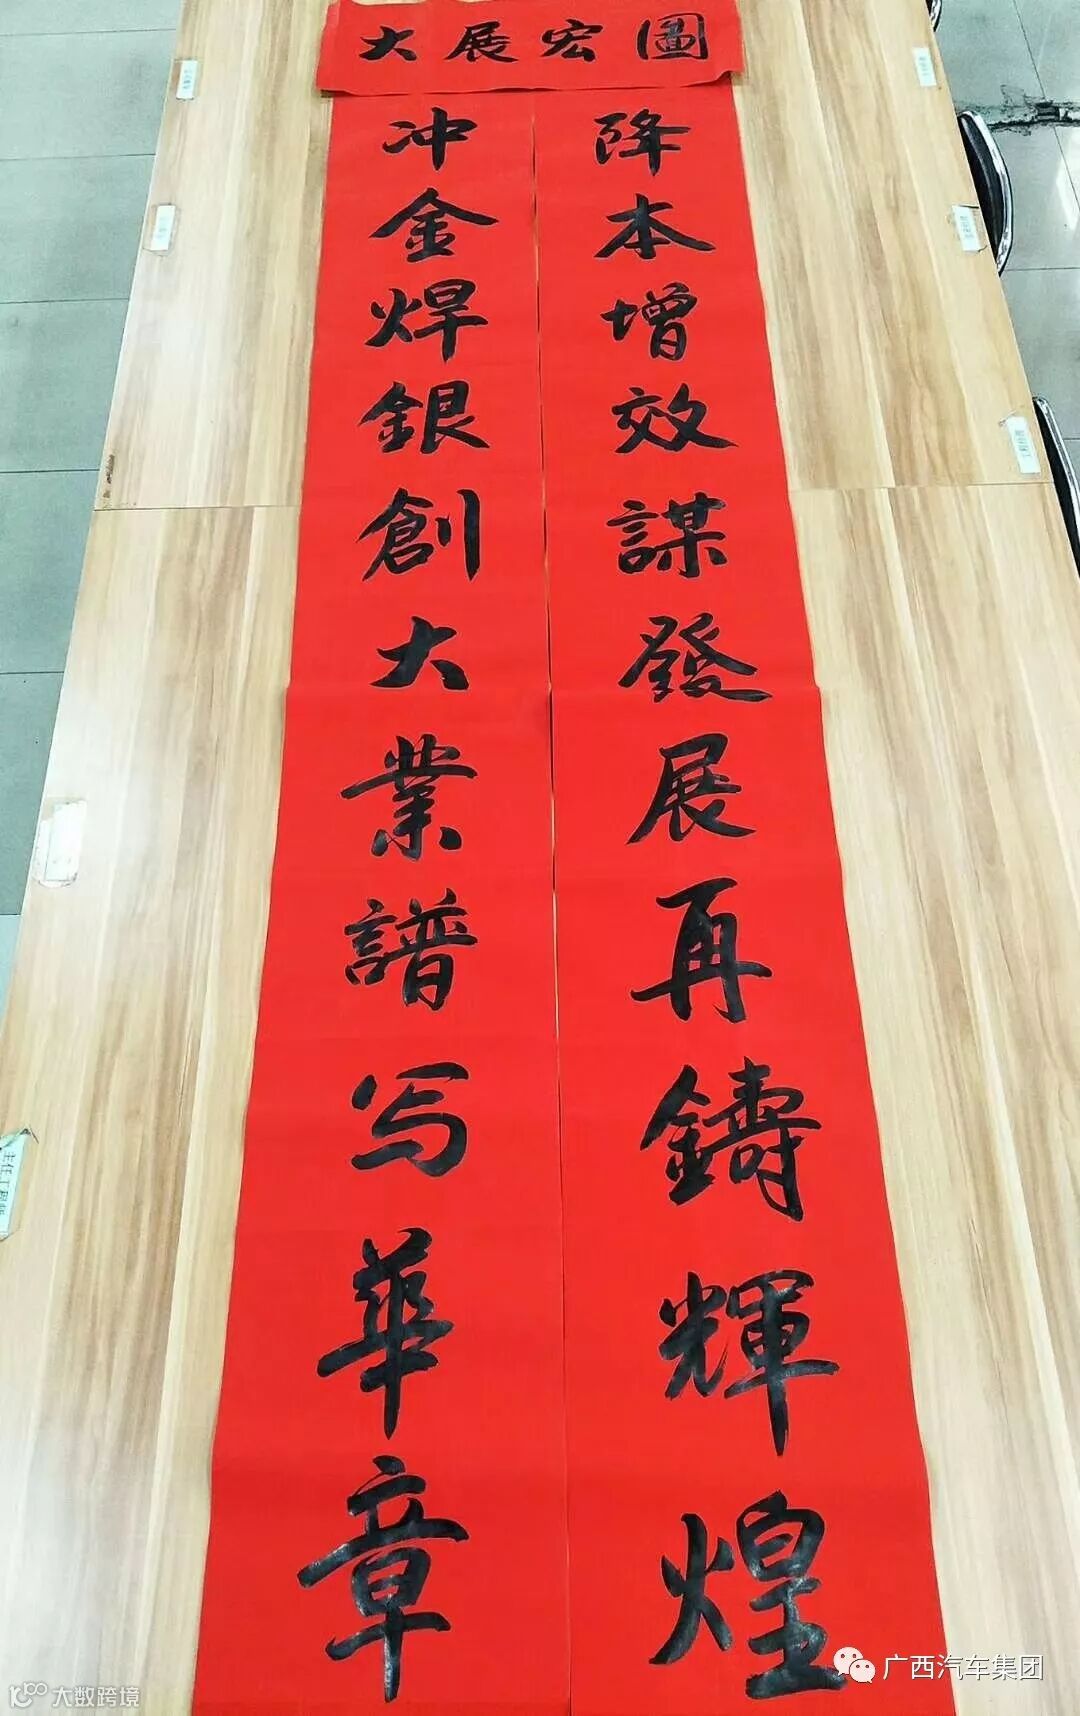 大展宏圖
冲金焊銀創大業譜写華章
降本增效謀發展再鑄輝煌
主任工程师
广西汽车集团
大数跨境